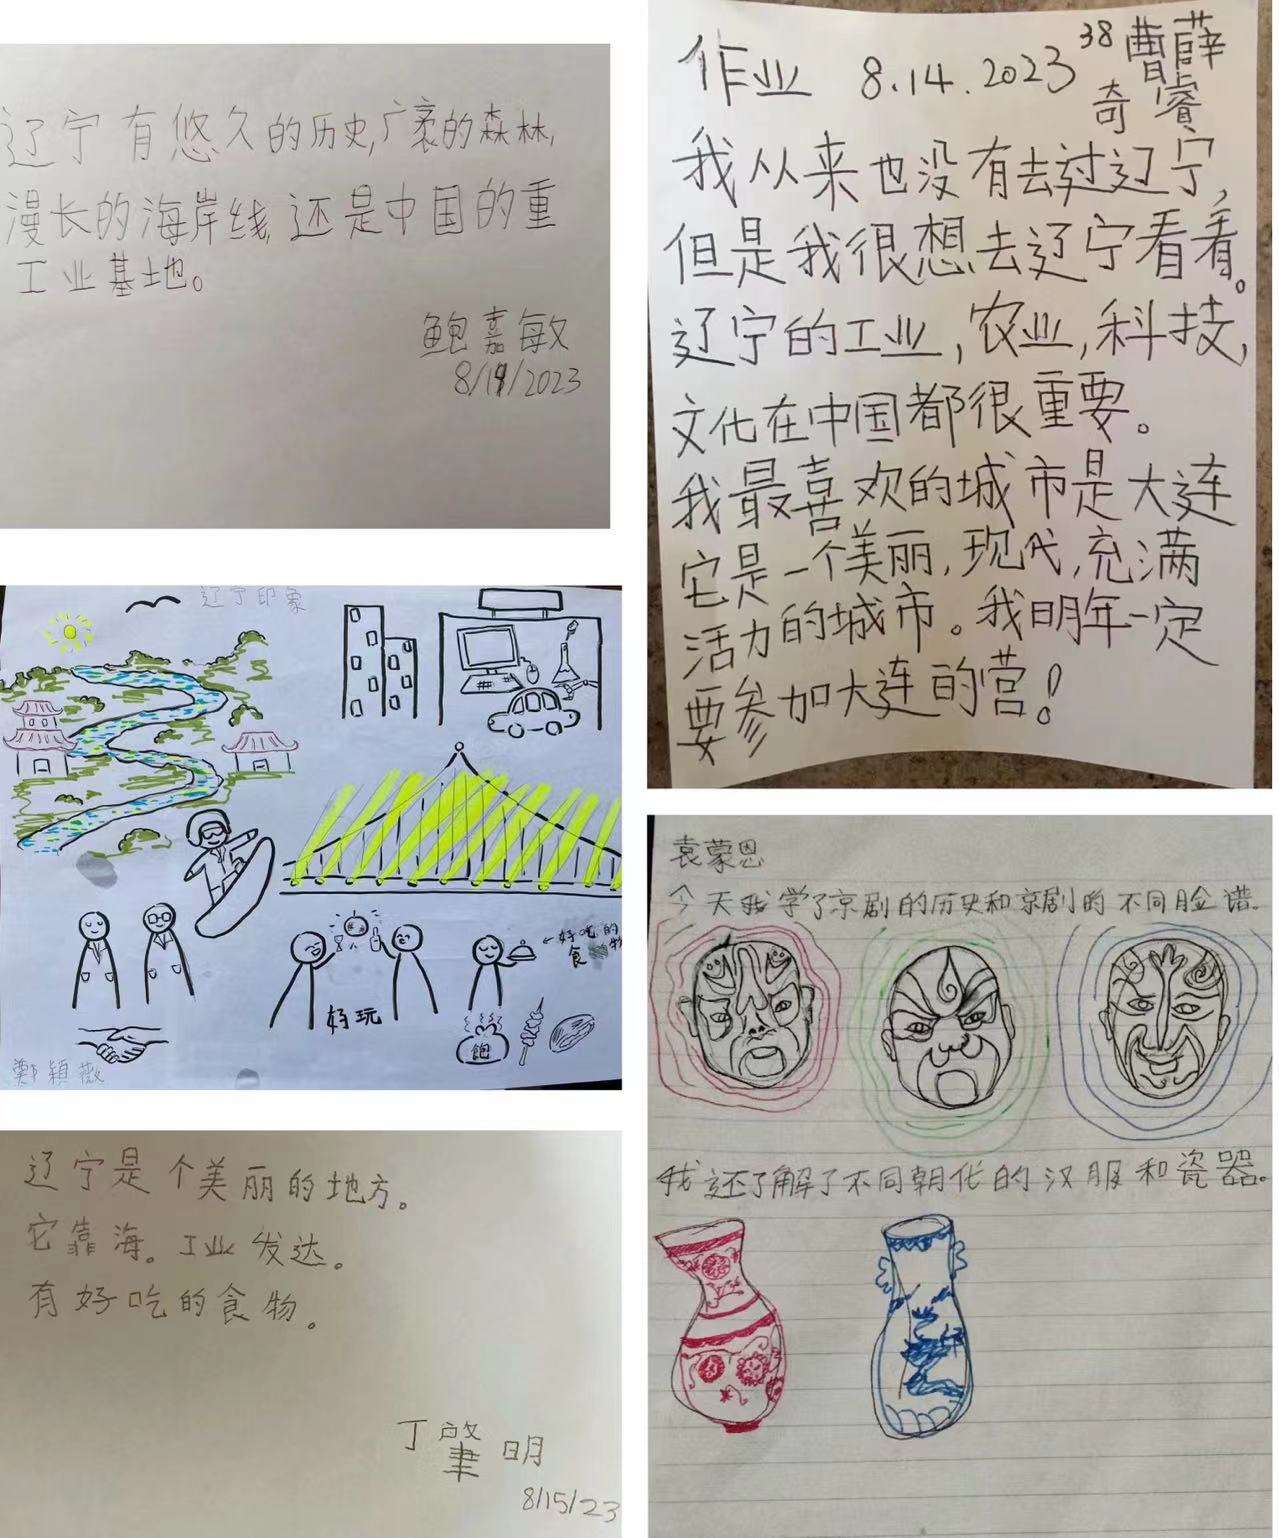 辽宁有悠久的历史,广袤的森林,
漫长的海岸线,还是中国的重
工业基地。
鲍嘉敏
8/14/2023
作业 8.14.2023 38 曹薛
奇睿
我从来也没有去过辽宁,
但是我很想去辽宁看看。
辽宁的工业,农业,科技,
文化在中国都很重要。
我最喜欢的城市是大连
它是一个美丽,现代,充满
活力的城市。我明年一定
要参加大连的营!
辽宁印象
←好吃的
食物
好玩
饱
鄭穎薇
袁蒙恩
今天我学了京剧的历史和京剧的不同脸谱。
我还了解了不同朝代的汉服和瓷器。
辽宁是个美丽的地方。
它靠海。工业发达。
有好吃的食物。
丁肇明
8/15/23